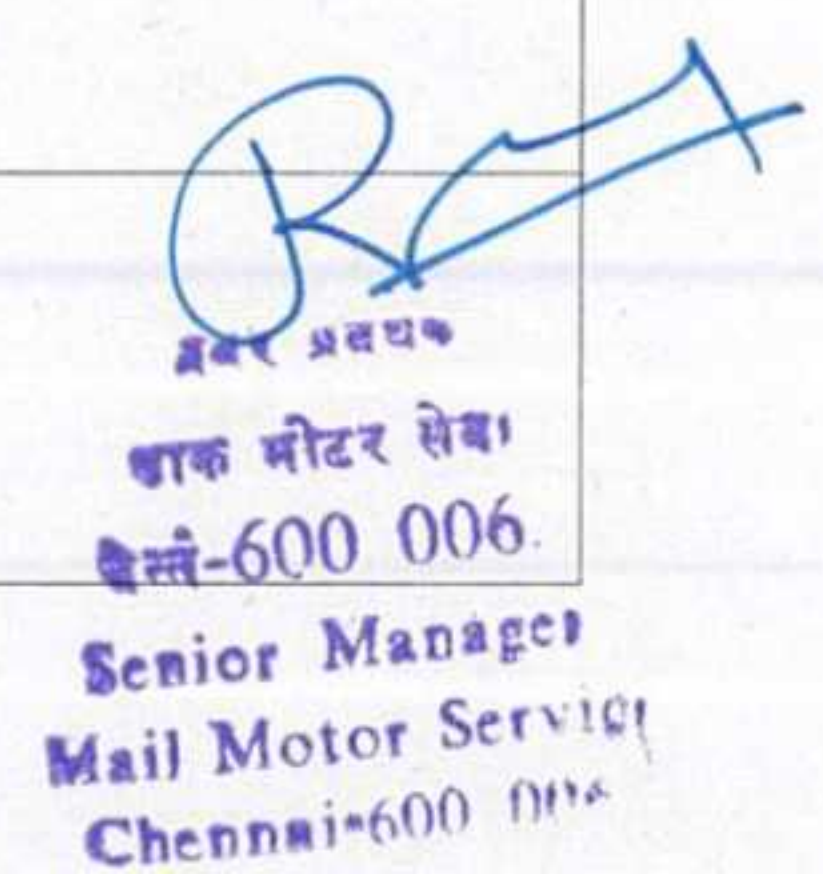 प्रबंधक
डाक मोटर सेवा
चेन्नै-600 006.
Senior Manager
Mail Motor Service
Chennai-600 006